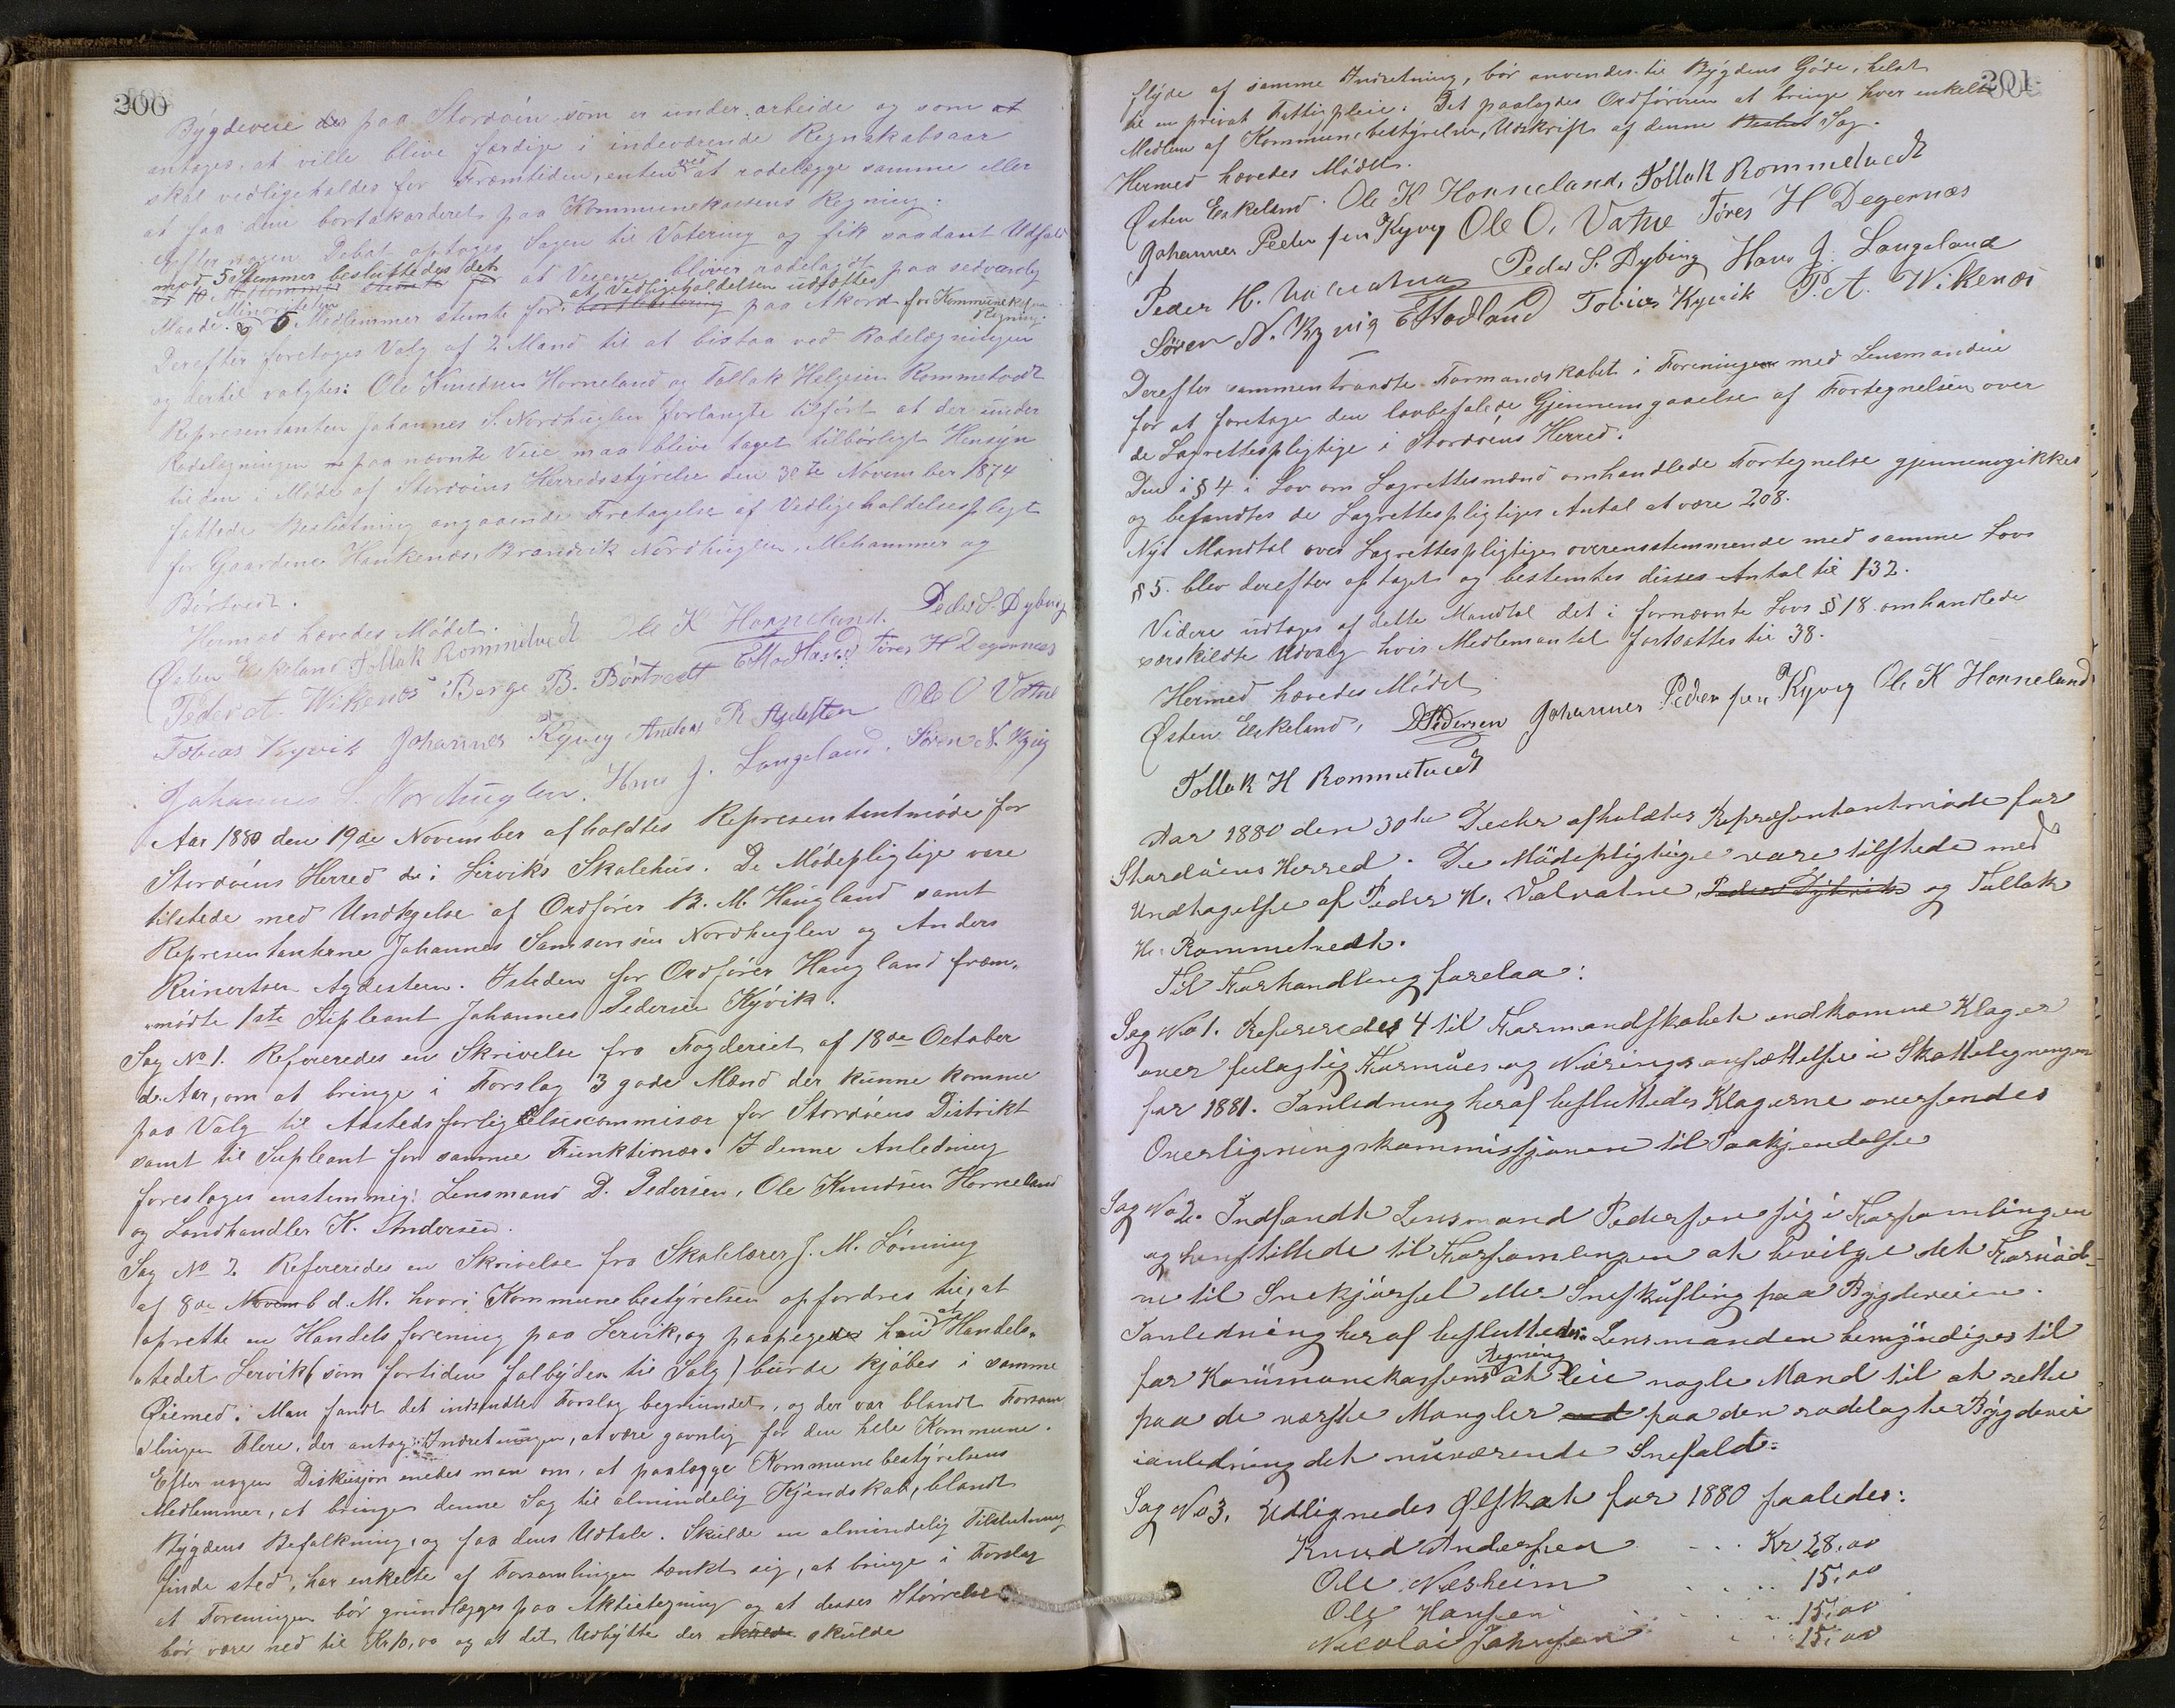 200
Bygdeveie der paa Stordøen som er under arbeide og som at
antages, at ville blive færdige i indeværende Regnskabsaar
skal vedligeholdes for Fremtiden, enten ved at rodelægge samme eller
at faa dem bortakorderet paa Kommunekassens Regning.
Efter nogen Debat optoges Sagen til Votering og fik saadant Udfald
mod 5 Stemmer besluttedes det at Veiene bliver rodelagdt paa sedvanlig
Maade. Minoriteten 5 Medlemmer stemte for at Vedligeholdelsen udsættes paa Akord for Kommunekassens Regning.
Derefter foretoges Valg af 2 Mand til at bistaa ved Rodelægningen
og dertil valgtes: Ole Knudsen Horneland og Tollak Helgesen Rommetvedt
Representanten Johannes S. Nordhuglen forlangte tilført at der under
Rodelægningen paa nævnte Veie maa blive taget tilbørligt Hensyn
til den i Møde af Stordøens Herredsstyrelse den 30te November 1874
fattede Beslutning angaaende Fretagelse af Vedligeholdelsespligt
for Gaardene Hankenæs, Brandvik Nordhuglen, Mehammer og
Børtvedt.
Hermed hævedes Mødet.
Østen Eskeland Tollak Rommetvedt Ole K Horneland. Peder S. Dybing
Peder A. Wikenæs Børge B. Børtvedt E Hodland Tøres H Degernæs
Tobias Kyvik Johannes Kyvig Anders R Agdesten Ole O Vatne
Johannes S. Nordhuglen. Hans J. Langeland. Søren N. Kyvig
Aar 1880 den 19de November afholdtes Representantmøde for
Stordøens Herred i Lervik's Skolehus. De Mødepligtige vare
tilstede med Undtgelse af Ordfører B. M. Haugland samt
Representanterne Johannes Samsonsen Nordhuglen og Anders
Reinertsen Agdesteen. Isteden for Ordfører Haugland frem-
mødte 1ste Supleant Johannes Pedersen Kyvik.
Sag No 1. Refereredes en Skrivelse fra Fogderiet af 18de October
d. Aar, om at bringe i Forslag 3 gode Mænd der kunne komme
paa Valg til Aastedsforligelsescommisær for Stordøens Distrikt
samt til Supleant for samme Funktionær. I denne Anledning
foresloges enstemmig: Lensmand D. Pedersen, Ole Knudsen Horneland
og Landhandler K. Andersen.
Sag No 2 Refereredes en Skrivelse fra Skolelærer J. M. Lønning
af 8de Novemb d. M. hvori Kommunebestyrelsen opfordres til, at
oprette en Handelsforening paa Lervik, og paapeges han at Handels-
stedet Lervik (som fortiden falbydes til Salg) burde kjøbes i samme
Øiemed. Man fandt det indsendte Forslag begrundet, og der var blandt Forsam
lingen Flere, der antog Indretningen, at være gavnlig for den hele Kommune.
Efter nogen Diskusjon enedes man om, at paalægge Kommunebestyrelsens
Medlemmer, at bringe denne Sag til almindelig Kjendskab, blandt
Bygdens Befolkning, og faa dens Udtale. Skulde en almindelig Tilslutning
finde sted, har enkelte af Forsamlingen tænkt sig, at bringe i Forslag
at Foreningen bør grundlægges paa Aktietegning og at desses Størrelse
bør være ned til Kr 10,00 og at det Udbytte der skulde skulde
201
flyde af samme Indretning, bør anvendes til Bygdens Gode, helst
til en privat Fattigpleie. Det paalagdes Ordføreren at bringe hver enkelt
Medlem af Kommunebestyrelsen, Udskrift af denne Beslut Sag.
Hermed hævedes Mødet.
Østen Eskeland. Ole K Horneland, Tollak Rommetvedt
Johannes Pedersen Kyvig Ole O. Vatne Tøres H Degernæs
Peder H. Valvatna Peder S. Dybing Hans J. Langeland
Søren N. Kyvig E Hodland Tobias Kyvik P. A. Wikenæs
Derefter sammentraadte Formandskabet i Foreningen med Lensmanden
for at foretage den lovbefalede Gjennemgaaelse af Fortegnelsen over
de Lagrettespligtige i Stordøens Herred.
Den i § 4 i Lov om Lagrettesmænd omhandlede Fortegnelse gjennemgikkes
og befandtes de Lagrettespligtiges Antal at være 208.
Nyt Mandtal over Lagrettespligtige overensstemmende med samme Lovs
§ 5. blev derefter optaget og bestemtes disses Antal til 132.
Videre udtoges af dette Mandtal det i fornævnte Lovs § 18 omhandlede
særskildte Udvalg hvis Medlemantal fastsattes til 38.
Hermed hævedes Mødet
Østen Eskeland, D Pedersen Johannes Pedersen Kyvig Ole K Horneland
Tollak H Rommetvedt
Aar 1880 den 30te Decbr afholdtes Repræsentantmøde for
Stordøens Herred. De Mødepligtige vare tilstede med
Undtagelse af Peder H. Valvatne, og Tollak
H. Rommetvedt.
Til Forhandling forelaa:
Sag No 1. Refereredes 4 til Formandskabet indkomne Klager
over feilagtig Formues og Næringsansættelse i Skatteligningen
for 1881. I anledning heraf besluttedes Klagerne oversendes
Overligningskommissjonen til Paakjendelse
Sag No 2. Indfandt Lensmand Pedersen sig i Forsamlingen
og henstillede til Forsamlingen at bevilge det Fornød-
ne til Snekjørsel eller Sneskufling paa Bygdeveien.
I anledning heraf besluttedes: Lensmanden bemyndiges til
for Kommunekassens Regning at leie nogle Mand til at rette
paa de værste Mangler ved paa den rodelagte Bygdevei
i anledning det nuværende Snefald.
Sag No 3. Udlignedes Ølskat for 1880 saaledes:
Knud Andersen . . . Kr 28,00
Ole Næsheim . . . 15,00
Ole Hansen . . . " 15,00
Nicolai Johnsen . . . 15,00